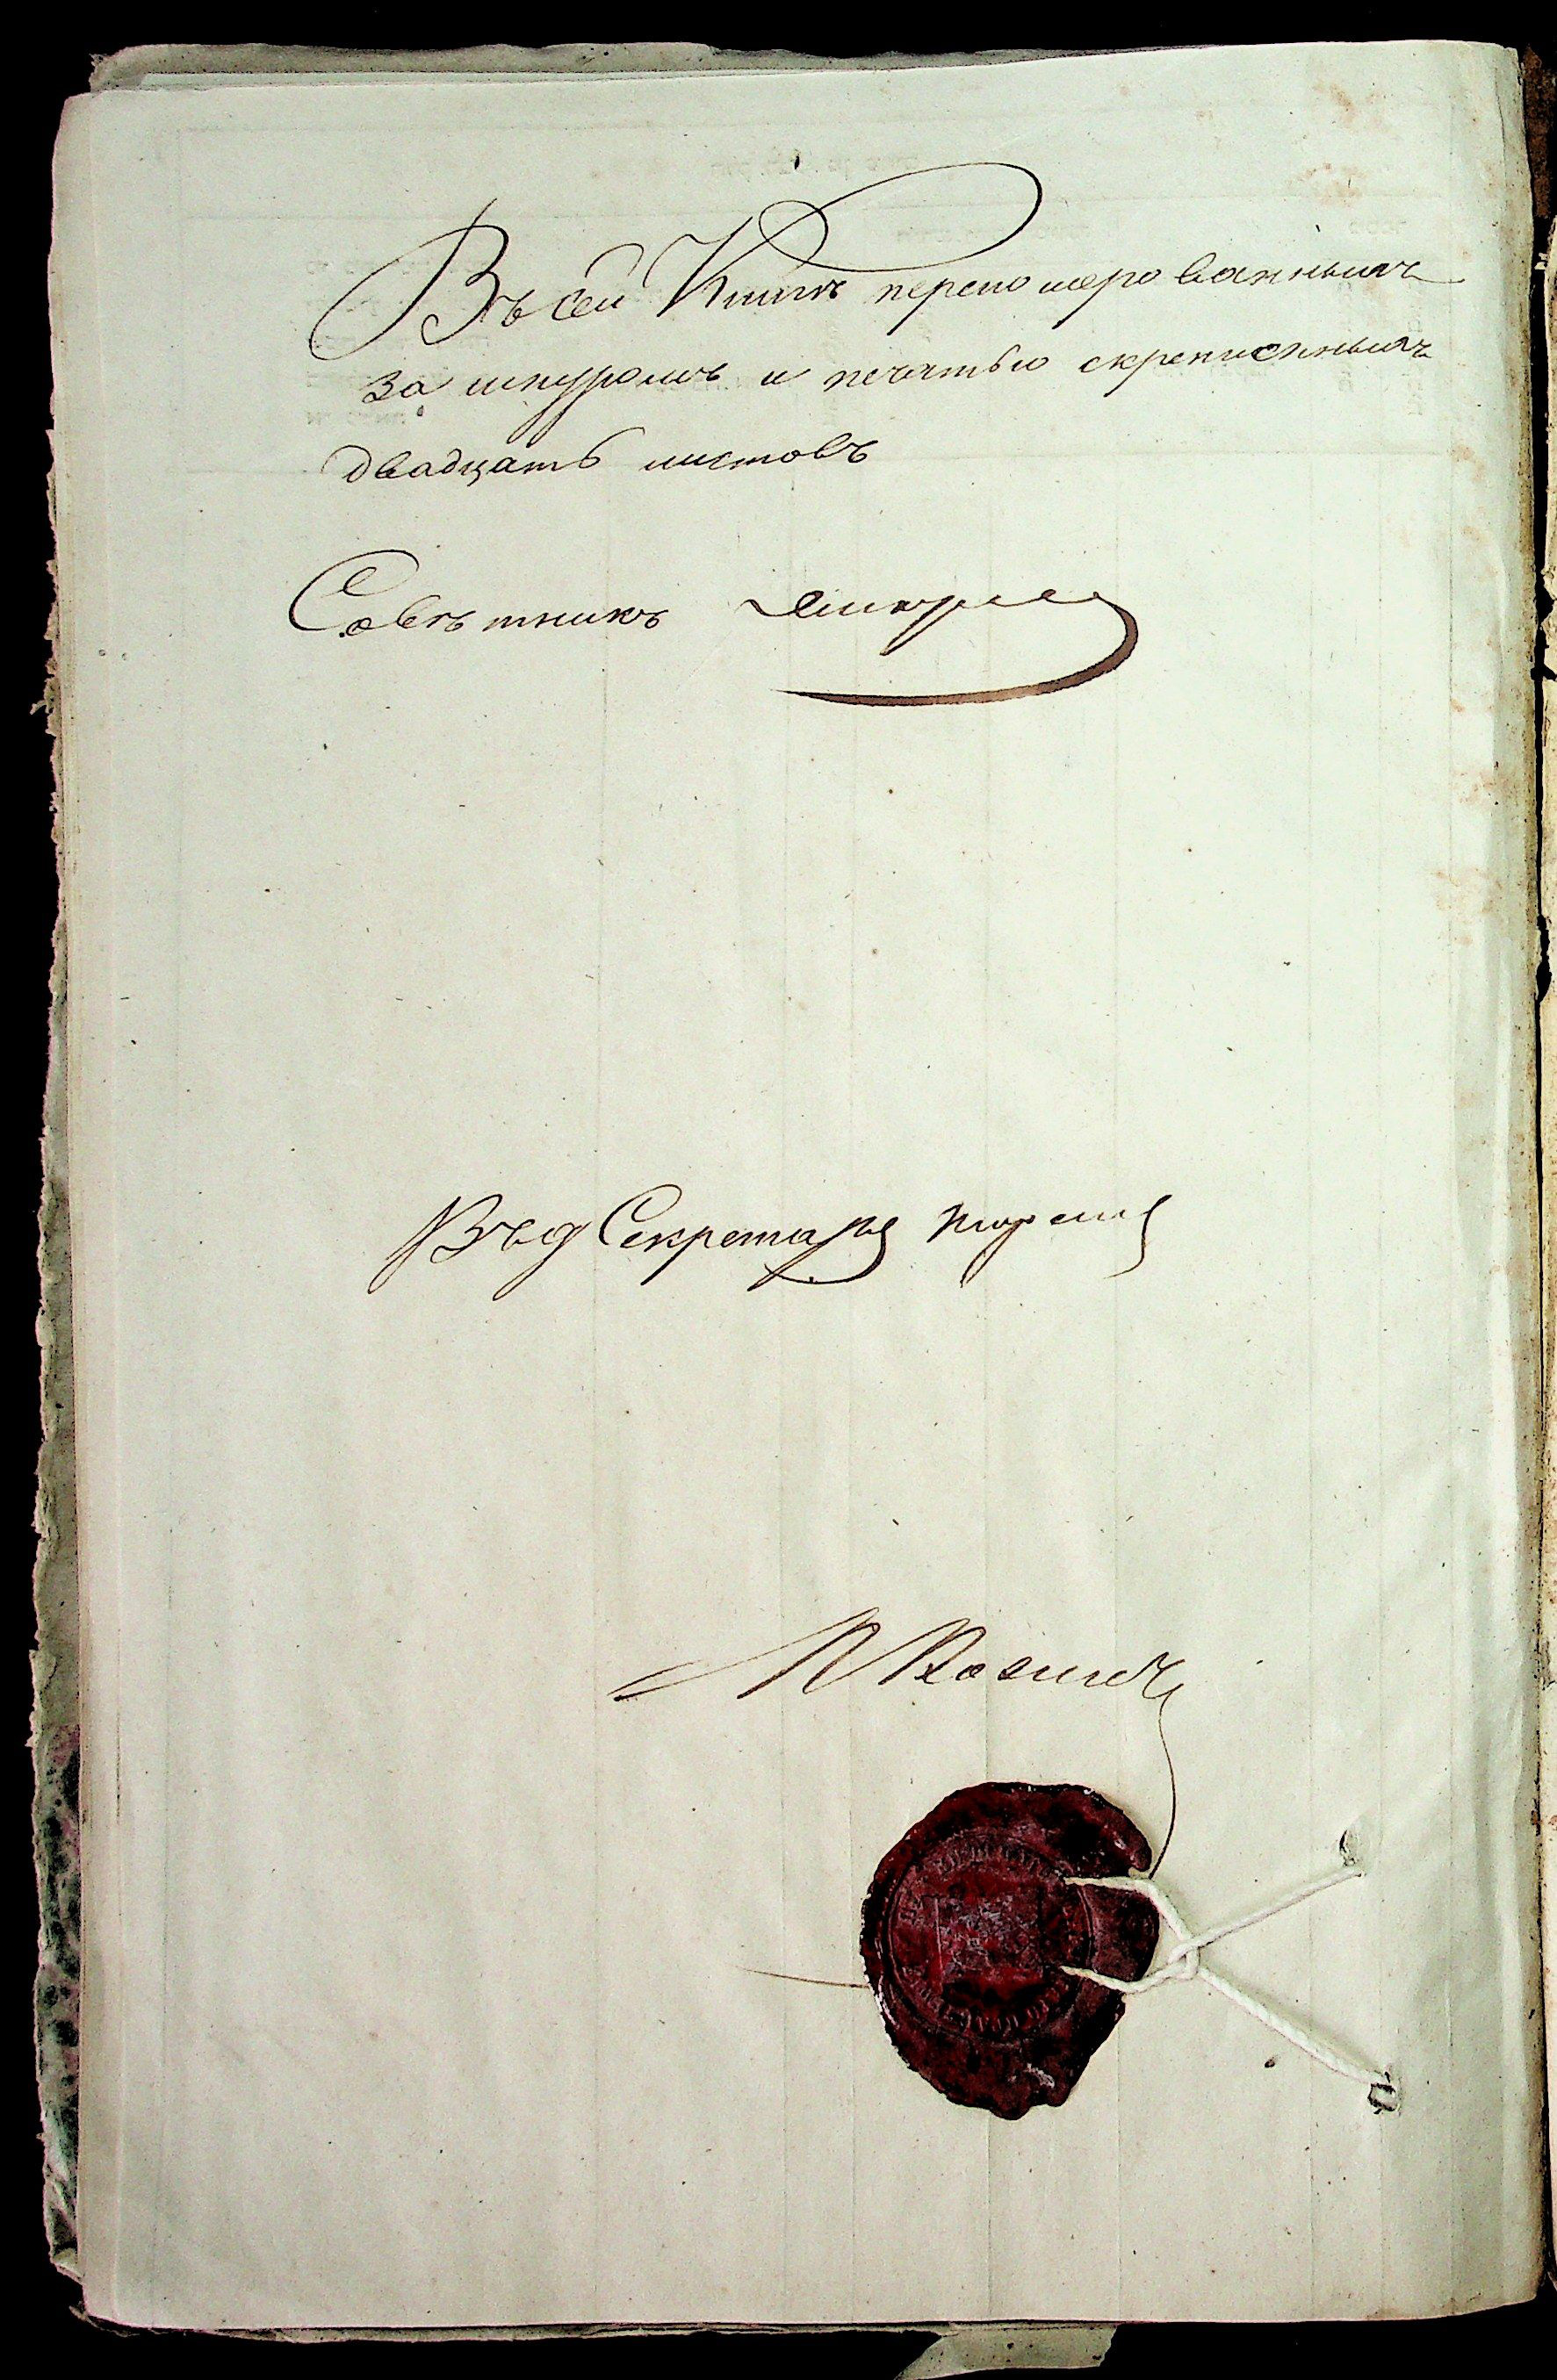 Въ сей Книгѣ переномерованныхъ
за шнуромъ и печатью скрепленныхъ
двадцать листовъ
Совѣтникъ
Секретаря